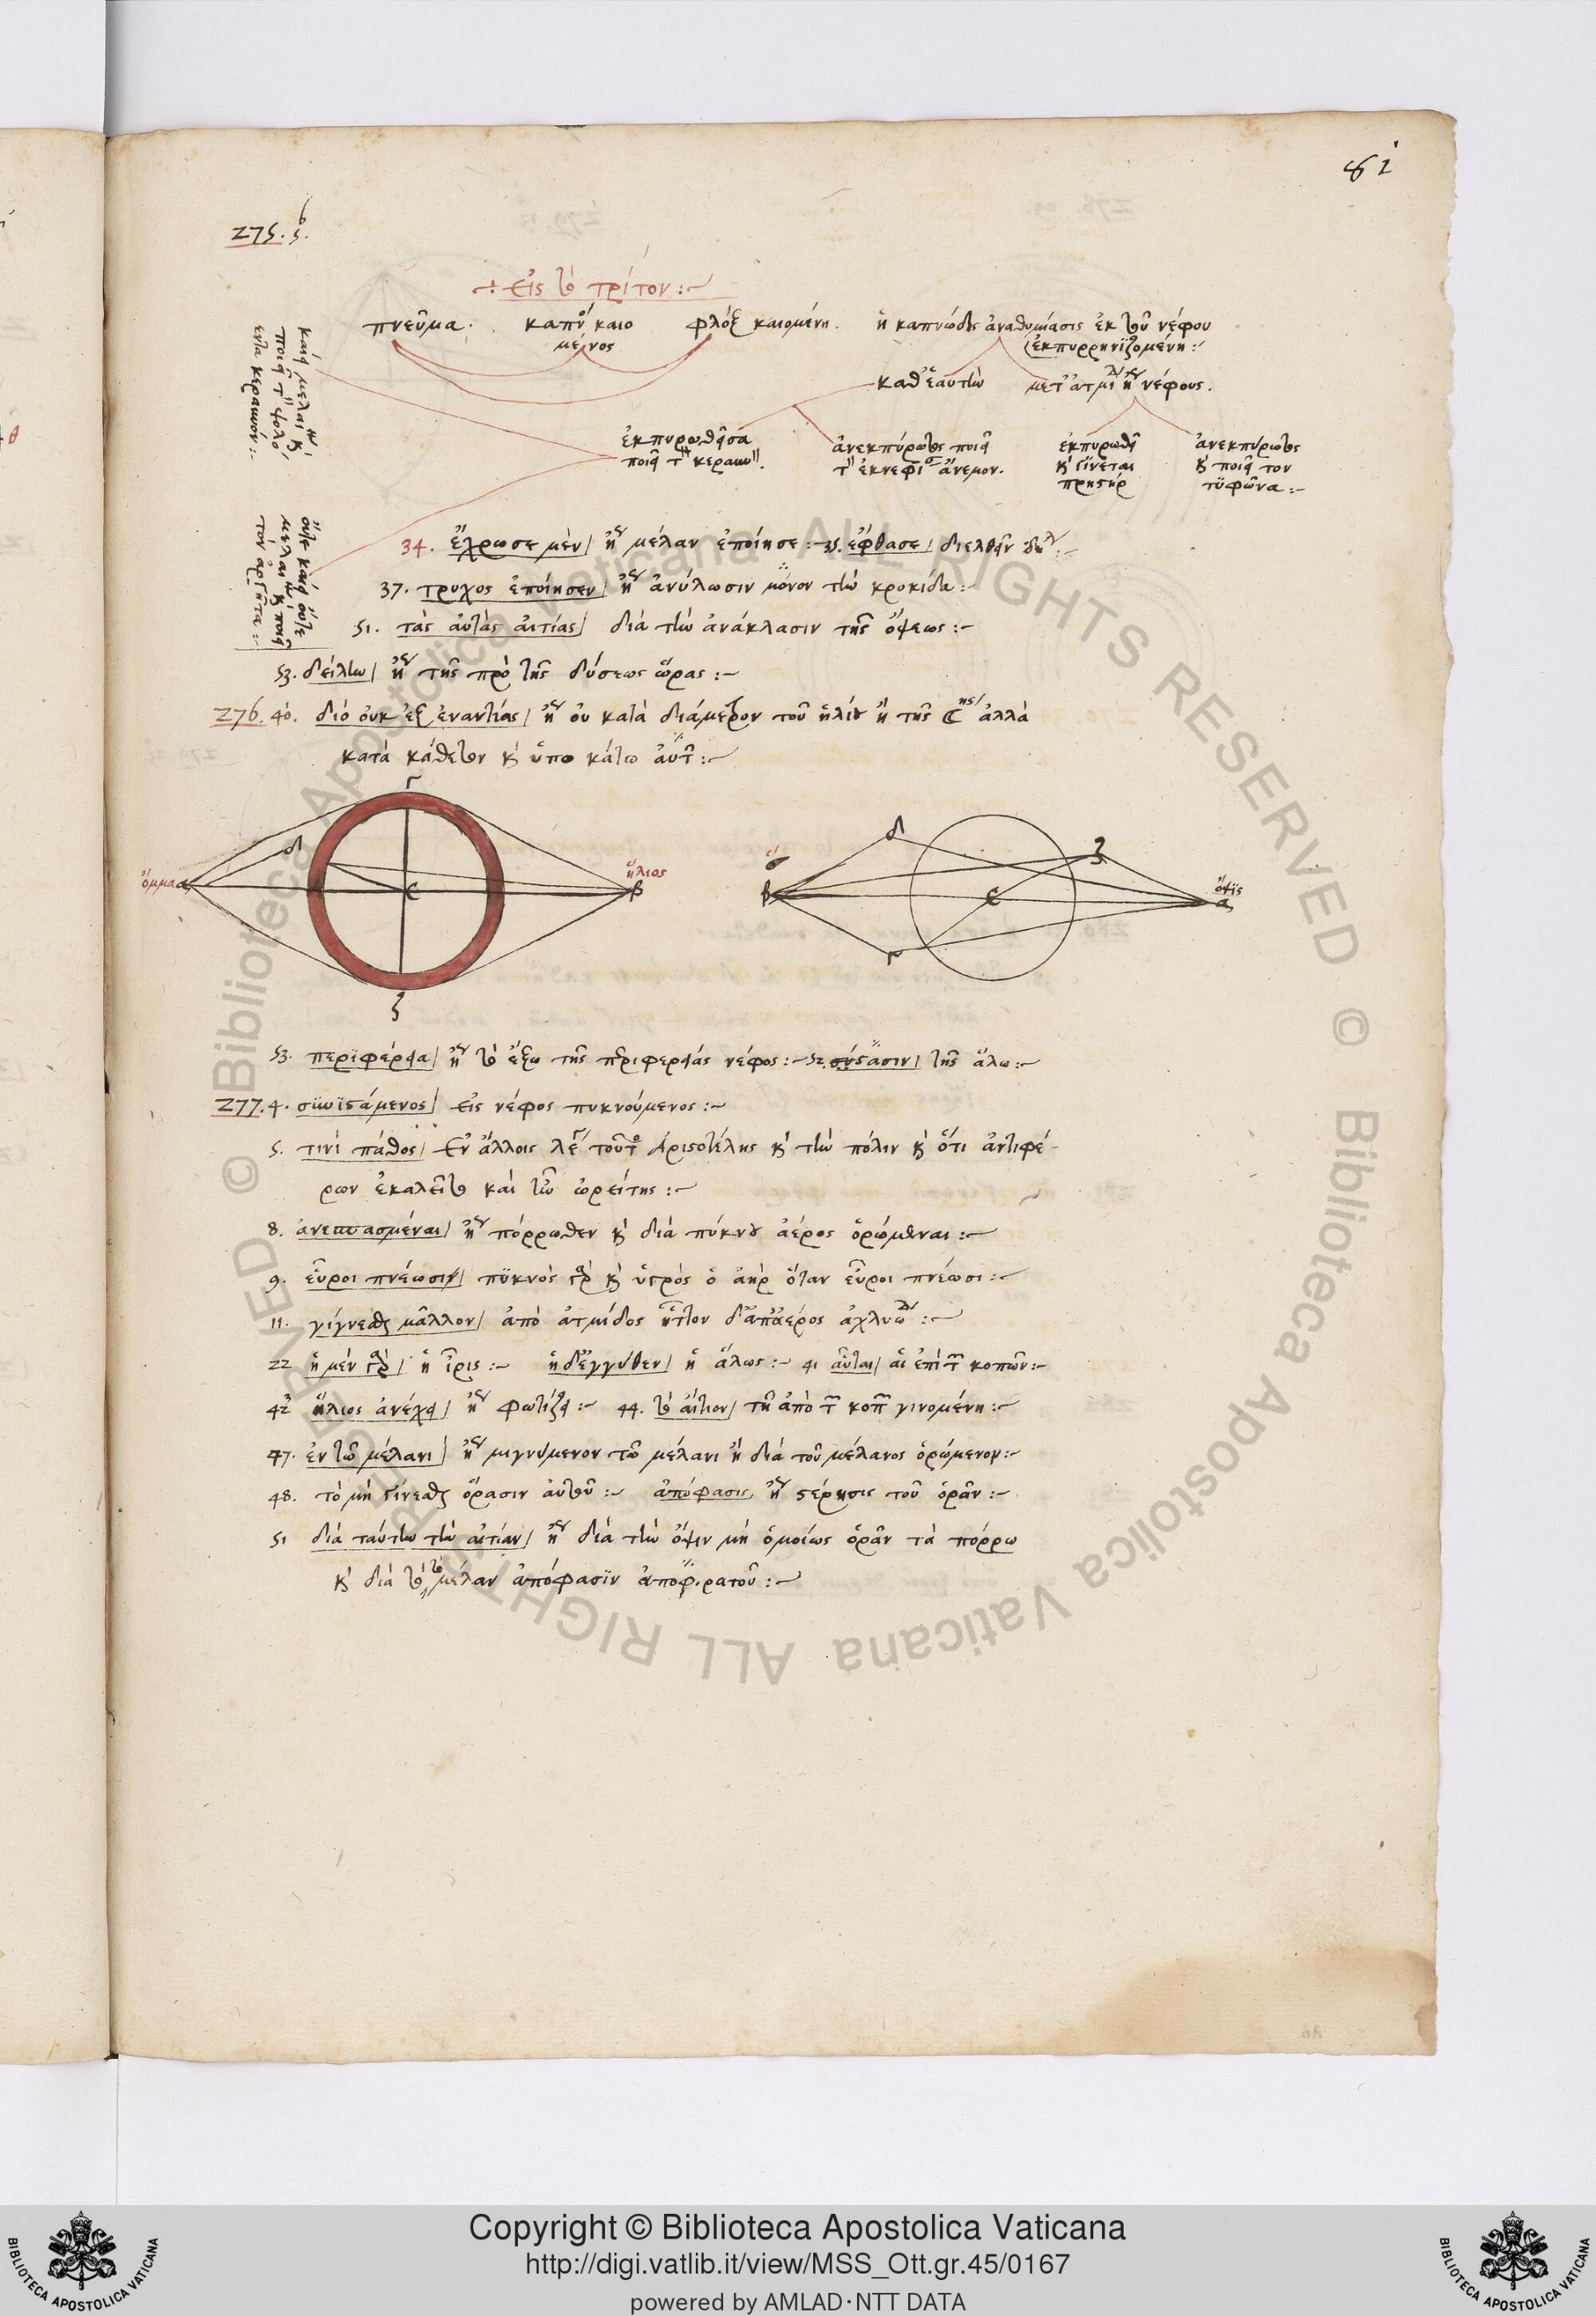 81
275. 5. 6
Εἰς τὸ τρίτον :~
πνεῦμα · καπνὸς καιόμενος φλὸξ καιομένη. ἡ καπνώδης ἀναθυμίασις ἐκ τοῦ νέφου
ἐκπυρρηνιζομένη :
καθ' ἑαυτὴν μετ' ἀτμί νέφους.
ἐκπυρωθεῖσα ποιεῖ τ κεραυν.
ἀνεκπύρωτος ποιεῖ τ ἐκνεφί ἄνεμον.
ἐκπυρωθῇ κ γίνεται πρηστήρ
ἀνεκπύρωτος κ ποιεῖ τον τϋφῶνα :~
καίει μελαι κ ποιεῖ τ ψολόεντα κεραυνόν :
οὔτε καίει οὔτε μελαι κ ποιεῖ τὸν ἀργῆτα :
34. ἔχρωσε μὲν / ἤ μέλαν ἐποίησε :~ 35. ἔφθασε / διελθεῖν δηλ :~
37. τρυχος ἐποίησεν / ἤ ἀνύλωσιν μόνον τὴν κροκίδα :~
51. τὰς αὐτὰς αἰτίας / διὰ τὴν ἀνάκλασιν τῆς ὄψεως :~
53. δείλην / ἤ τῆς πρὸ τῆς δύσεως ὥρας :~
276. 40. διὸ οὐκ ἐξ ἐναντίας / ἤ οὐ κατὰ διάμετρον τοῦ ἡλίου ἢ τῆς ☾ης ἀλλὰ
κατὰ κάθετον κ ὑπο κάτω αὐτ :~
Γ
ὄμμα α δ ε ἥλιος β
ζ
β δ ζ ε ὄψις α
Γ
53. περϊφέρεια / ἤ τὸ ἔξω τῆς περιφερείας νέφος :~ 52. σύστασιν / τῆς ἅλω :~
277. 4. σϋνϊστάμενος / εἰς νέφος πυκνούμενος :~
5. τινὶ πάθος / Ἐν ἄλλοις λέγ τοῦτ Ἀριστοτέλης κ τὴν πόλιν κ ὅτι ἀντιφέ-
ρων ἐκαλεῖτο καὶ τῷ ὠρείτης :~
8. ἀνεσπασμέναι / ἤ πόρρωθεν κ διὰ πύκνου ἀέρος ὁρώμεναι :~
9. εὖροι πνέωσιν / πϋκνὸς γὰρ κ ὑγρὸς ὁ ἀὴρ ὅταν εὖροι πνέωσι :~
11. γίγνεσθαι μᾶλλον / ἀπὸ ἀτμίδος ἧττον δ' ἀπ' ἀέρος ἀχλυώ :~
22 ἡ μὲν γὰρ / ἡ ἶρις :~ ἡ δ' ἐγγύθεν / ἡ ἅλως :~ 41 αὗται / αἱ ἐπὶ τ κοπῶν :~
42 ἥλιος ἀνέχει / ἤ φωτίζει :~ 44. τὸ αἴτιον / τῇ ἀπὸ τ κοπ γινομένη :~
47. ἐν τῷ μέλανι / ἤ μιγνύμενον τῷ μέλανι ἢ διὰ τοῦ μέλανος ὁρώμενον :~
48. τὸ μὴ γίνεσθαι ὅρασιν αὐτοῦ :~ ἀπόφασις ἤ στέρησις τοῦ ὁρᾶν :~
51 διὰ ταύτην τὴν αἰτίαν / ἤ διὰ τὴν ὄψιν μὴ ὁμοίως ὁρᾶν τὰ πόρρω
κ διὰ τὸ τὸ μέλαν ἀπόφασϊν :~
Copyright © Biblioteca Apostolica Vaticana
http://digi.vatlib.it/view/MSS_Ott.gr.45/0167
powered by AMLAD·NTT DATA
BIBLIOTECA APOSTOLICA VATICANA
BIBLIOTECA APOSTOLICA VATICANA
© Biblioteca Apostolica Vaticana ALL RIGHTS RESERVED © Biblioteca Apostolica Vaticana ALL RIGHTS RESERVED